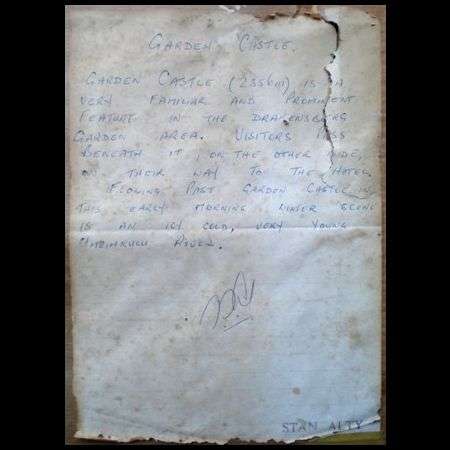 GARDEN CASTLE.
GARDEN CASTLE (2356m) IS A
VERY FAMILIAR AND PROMINENT
FEATURE IN THE DRAKENSBERG
GARDEN AREA. VISITORS PASS
BENEATH IT, ON THE OTHER SIDE,
ON THEIR WAY TO THE HOTEL.
FLOWING PAST GARDEN CASTLE IN
THIS EARLY MORNING WINTER SCENE
IS AN ICY COLD, VERY YOUNG
UMZIMKULU RIVER.
STAN ALTY